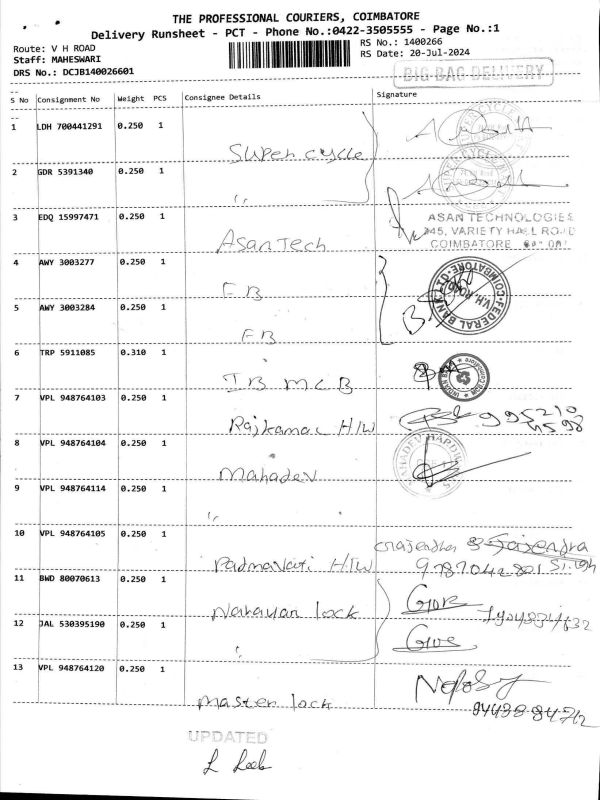 THE PROFESSIONAL COURIERS, COIMBATORE
Delivery Runsheet - PCT - Phone No.:0422-3505555 - Page No.:1
Route: V H ROAD
RS No.: 1400266
Staff: MAHESWARI
RS Date: 20-Jul-2024
DRS No.: DCJB140026601
BIG BAG DELIVERY
S No Consignment No Weight PCS Consignee Details Signature
1 LDH 700441291 0.250 1
Super cycle
2 GDR 5391340 0.250 1
"
3 EDQ 15997471 0.250 1
ASAN TECHNOLOGIES
VARIETY HALL ROAD
COIMBATORE
Asan Tech
4 AWY 3003277 0.250 1
FB
FEDERAL BANK LTD. COIMBATORE
V.H. ROAD
5 AWY 3003284 0.250 1
FB
6 TRP 5911085 0.310 1
IB MCB
7 VPL 948764103 0.250 1
Rajkamal H/W
8 VPL 948764104 0.250 1
Mahadev
9 VPL 948764114 0.250 1
"
10 VPL 948764105 0.250 1
Padmavati H/W
11 BWD 80070613 0.250 1
Narayan lock
12 JAL 530395190 0.250 1
"
13 VPL 948764120 0.250 1
master lock
UPDATED